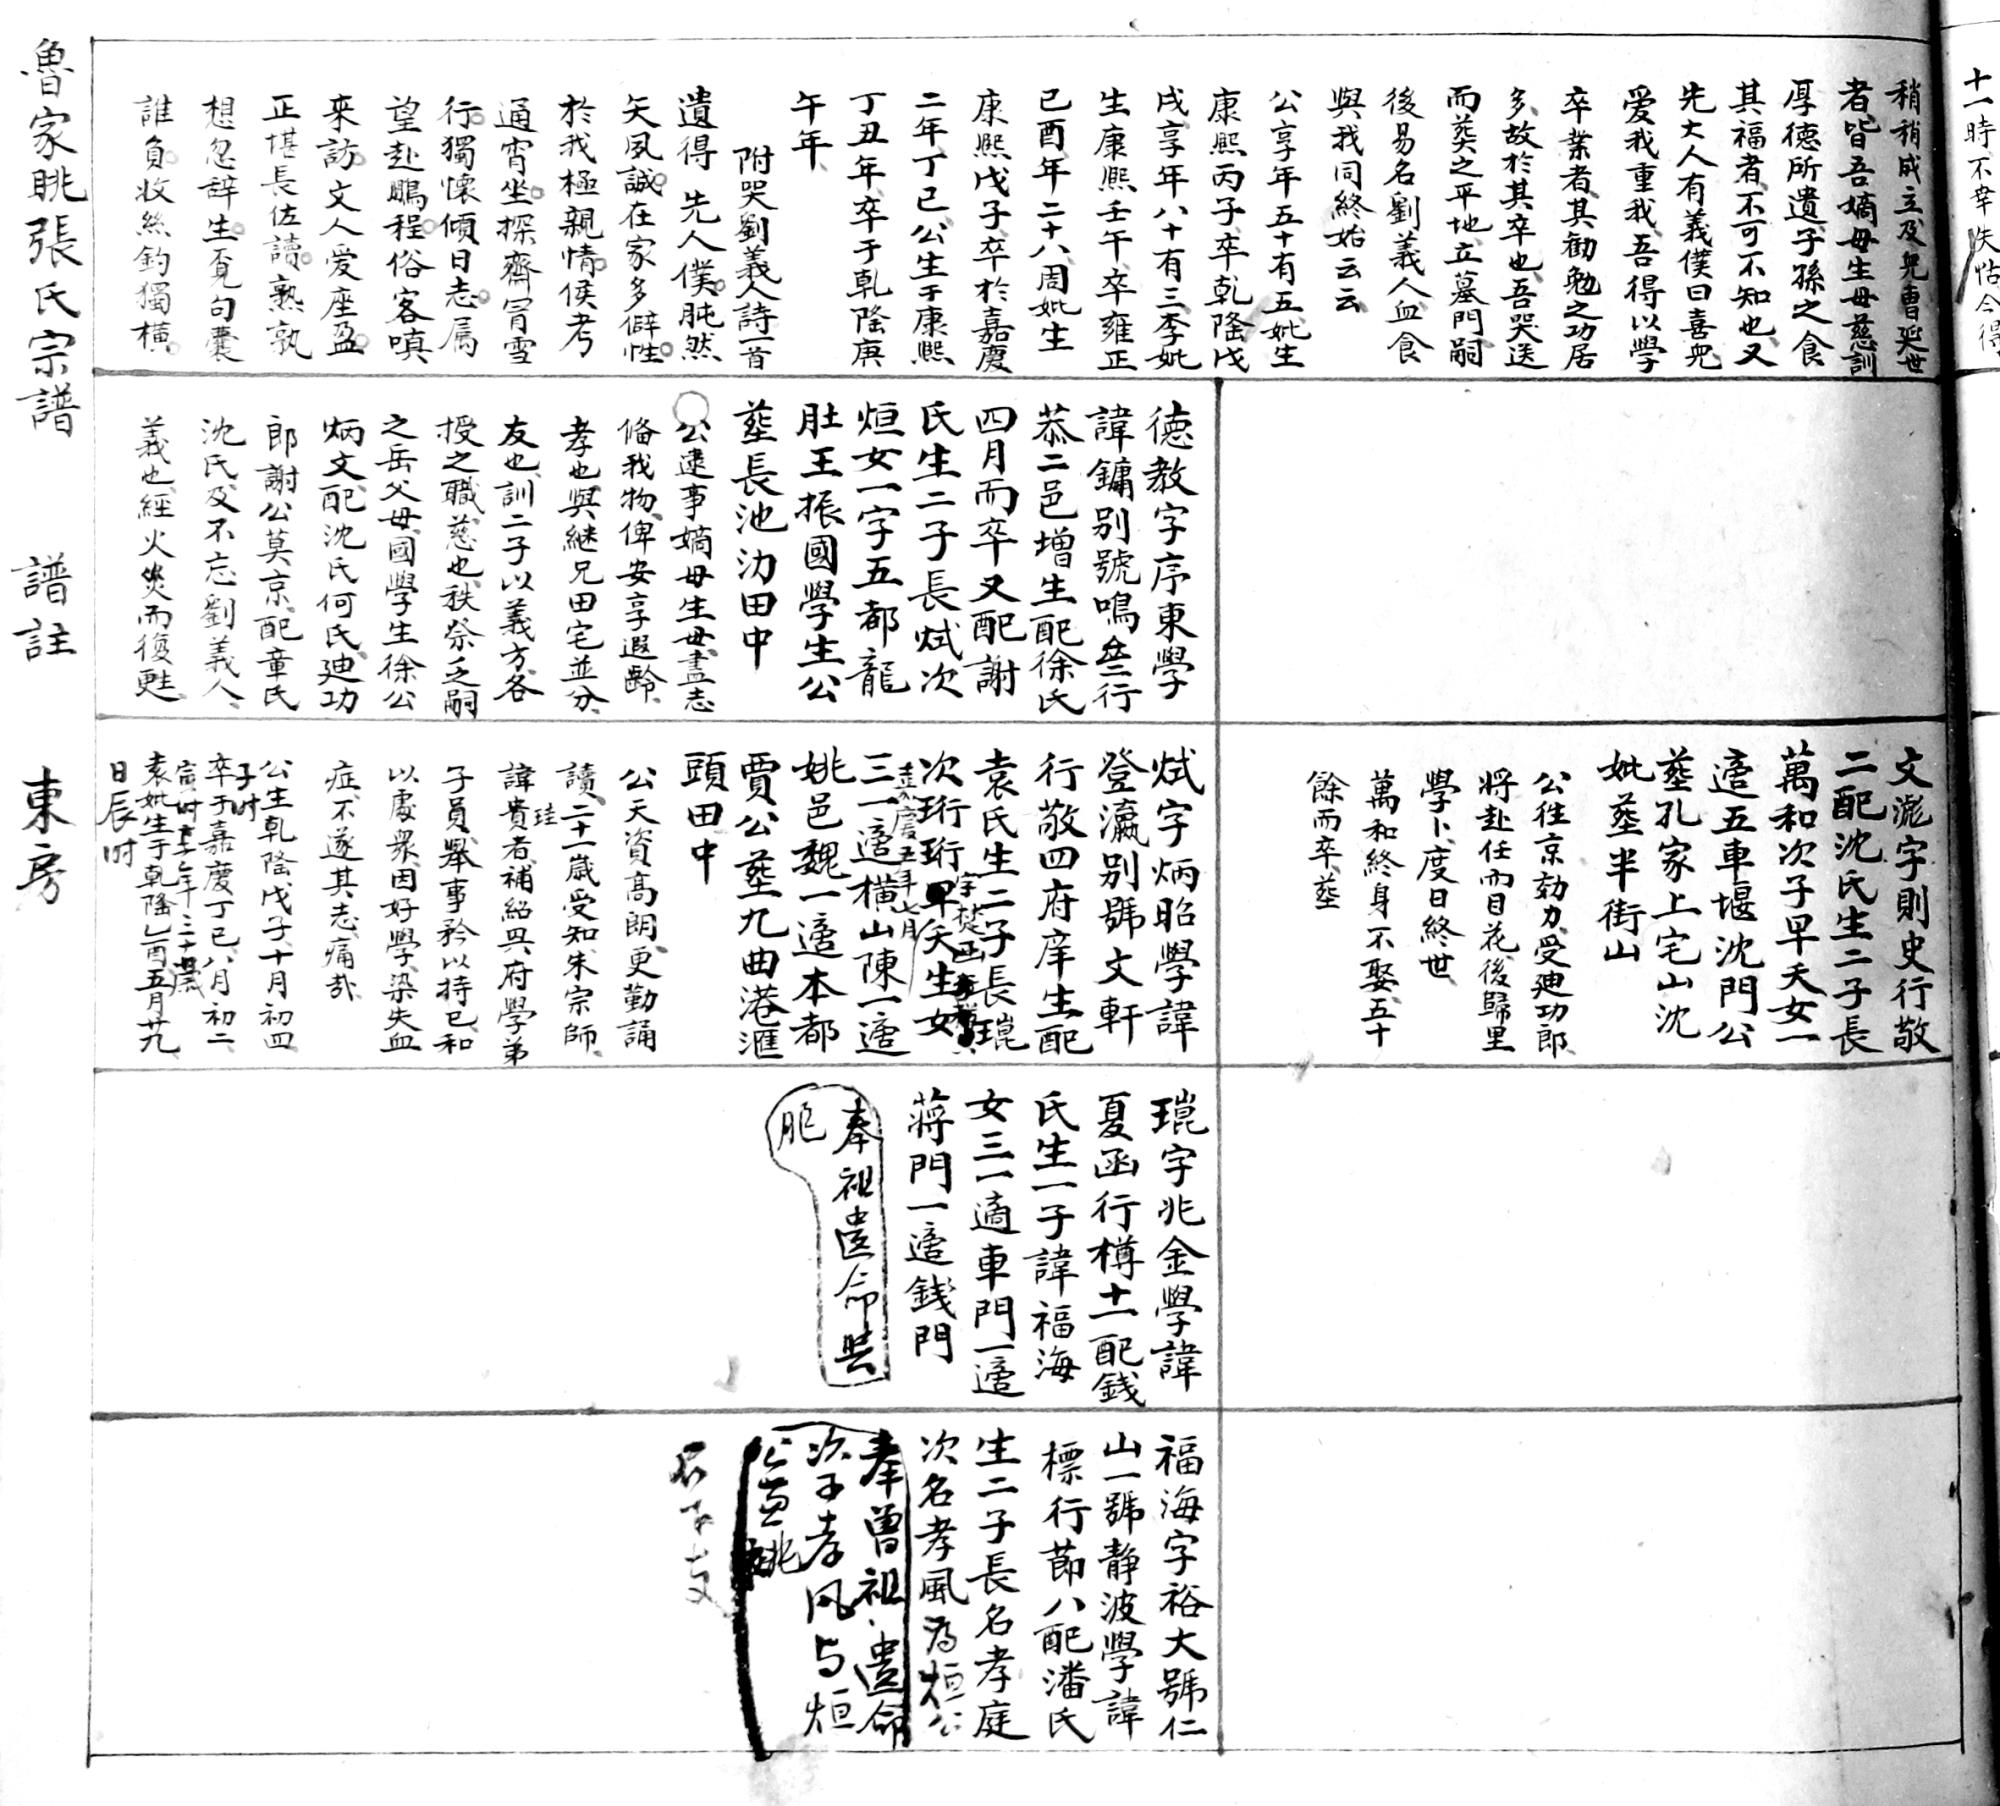 十一時不幸失怙今得
稍稍成立及兒曹延世
者皆吾嫡母生母慈訓
厚德所遺子孫之食
其福者不可不知也又
先大人有義僕曰喜兒
愛我重我吾得以學
卒業者其勸勉之功居
多故於其卒也吾哭送
而葬之平地立墓門嗣
後易名劉義人血食
與我同終始云云
公享年五十有五妣生
康熙丙子卒乾隆戊
戌享年八十有三李妣
生康熙壬午卒雍正
己酉年二十八周妣生
康熙戊子卒於嘉慶
二年丁巳公生于康熙
丁丑年卒于乾隆庚
午年
附哭劉義人詩一首
遺得先人僕肫然
矢夙誠在家多僻性
於我極親情侯考
通宵坐探齋冒雪
行獨懷傾日志属
望赴鵬程俗客嗔
來訪文人爱座盈
正堪長佐讀熟孰
想忽辞生覔句囊
誰負收絲釣獨橫
德教字序東學
諱鏞别號鳴盎行
恭二邑增生配徐氏
四月而卒又配謝
氏生二子長烒次
烜女一字五都龍
肚王振國學生公
塟長池沥田中
公逮事嫡母生母盡志
俻我物俾安享遐齡
孝也與継兄田宅並分
友也訓二子以義方各
授之職慈也秩祭乏嗣
之岳父母國學生徐公
炳文配沈氏何氏廸功
郎謝公莫京配章氏
沈氏及不忘劉義人
義也經火災而復甦
文滮字則史行敬
二配沈氏生二子長
萬和次子早夭女一
適五車堰沈門公
塟孔家上宅山沈
妣塟半街山
公徃京効力受廸功郎
将赴任而目花後歸里
學卜度日終世
萬和終身不娶五十
餘而卒塟
烒字炳昭學諱
登瀛别號文軒
行敬四府庠生配
袁氏生二子長璭
次珩珩早夭生女
三一適橫山陳一適
姚邑魏一適本都
賈公塟九曲港滙
頭田中
嘉慶五年七月
公天資高朗更勤誦
讀二十一歲受知朱宗師
諱珪貴者補紹興府學弟
子員舉事矜以持已和
以處衆因好學染失血
症不遂其志痛哉
公生乾隆戊子十月初四
子时
卒于嘉慶丁巳八月初二
寅时享年三十歲
袁妣生于乾隆乙酉五月廿九
日辰时
璭字兆金學諱
夏函行樽十一配錢
氏生一子諱福海
女三一適車門一適
蔣門一適錢門
奉祖遺命共
祀
福海字裕大號仁
山一號静波學諱
標行節八配潘氏
生二子長名孝庭
次名孝風為烜公
奉曾祖遺命
次子孝风与烜
公益祧
魯家眺張氏宗譜
譜註
東房